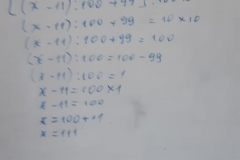 [(x - 11) : 100 + 99] : 100
(x - 11) : 100 + 99 = 10 x 10
(x - 11) : 100 + 99 = 100
(x - 11) : 100 = 100 - 99
(x - 11) : 100 = 1
x - 11 = 100 x 1
x - 11 = 100
x = 100 + 11
x = 111